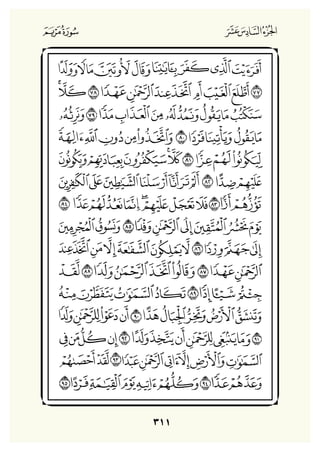 الجُزْءُ السَّادِسَ عَشَرَ
سُورَةُ مَرْيَمَ
أَفَرَءَيْتَ ٱلَّذِى كَفَرَ بِـَٔايَـٰتِنَا وَقَالَ لَأُوتَيَنَّ مَالًا وَوَلَدًا
٧٧ أَطَّلَعَ ٱلْغَيْبَ أَمِ ٱتَّخَذَ عِندَ ٱلرَّحْمَـٰنِ عَهْدًا ٧٨ كَلَّا
سَنَكْتُبُ مَا يَقُولُ وَنَمُدُّ لَهُۥ مِنَ ٱلْعَذَابِ مَدًّا ٧٩ وَنَرِثُهُۥ
مَا يَقُولُ وَيَأْتِينَا فَرْدًا ٨٠ وَٱتَّخَذُوا۟ مِن دُونِ ٱللَّهِ ءَالِهَةً
لِّيَكُونُوا۟ لَهُمْ عِزًّا ٨١ كَلَّا سَيَكْفُرُونَ بِعِبَادَتِهِمْ وَيَكُونُونَ
عَلَيْهِمْ ضِدًّا ٨٢ أَلَمْ تَرَ أَنَّآ أَرْسَلْنَا ٱلشَّيَـٰطِينَ عَلَى ٱلْكَـٰفِرِينَ
تَؤُزُّهُمْ أَزًّا ٨٣ فَلَا تَعْجَلْ عَلَيْهِمْ ۖ إِنَّمَا نَعُدُّ لَهُمْ عَدًّا ٨٤
يَوْمَ نَحْشُرُ ٱلْمُتَّقِينَ إِلَى ٱلرَّحْمَـٰنِ وَفْدًا ٨٥ وَنَسُوقُ ٱلْمُجْرِمِينَ
إِلَىٰ جَهَنَّمَ وِرْدًا ٨٦ لَّا يَمْلِكُونَ ٱلشَّفَـٰعَةَ إِلَّا مَنِ ٱتَّخَذَ عِندَ
ٱلرَّحْمَـٰنِ عَهْدًا ٨٧ وَقَالُوا۟ ٱتَّخَذَ ٱلرَّحْمَـٰنُ وَلَدًا ٨٨ لَّقَدْ
جِئْتُمْ شَيْـًٔا إِدًّا ٨٩ تَكَادُ ٱلسَّمَـٰوَٰتُ يَتَفَطَّرْنَ مِنْهُ
وَتَنشَقُّ ٱلْأَرْضُ وَتَخِرُّ ٱلْجِبَالُ هَدًّا ٩٠ أَن دَعَوْا۟ لِلرَّحْمَـٰنِ وَلَدًا
٩١ وَمَا يَنۢبَغِى لِلرَّحْمَـٰنِ أَن يَتَّخِذَ وَلَدًا ٩٢ إِن كُلُّ مَن فِى
ٱلسَّمَـٰوَٰتِ وَٱلْأَرْضِ إِلَّآ ءَاتِى ٱلرَّحْمَـٰنِ عَبْدًا ٩٣ لَّقَدْ أَحْصَىٰهُمْ
وَعَدَّهُمْ عَدًّا ٩٤ وَكُلُّهُمْ ءَاتِيهِ يَوْمَ ٱلْقِيَـٰمَةِ فَرْدًا ٩٥
٣١١